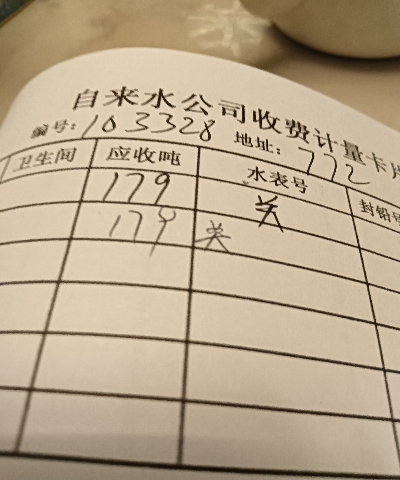 自来水公司收费计量卡片
编号: 103328 地址: 772
卫生间 应收吨 水表号 封铅号
179 关
179 关